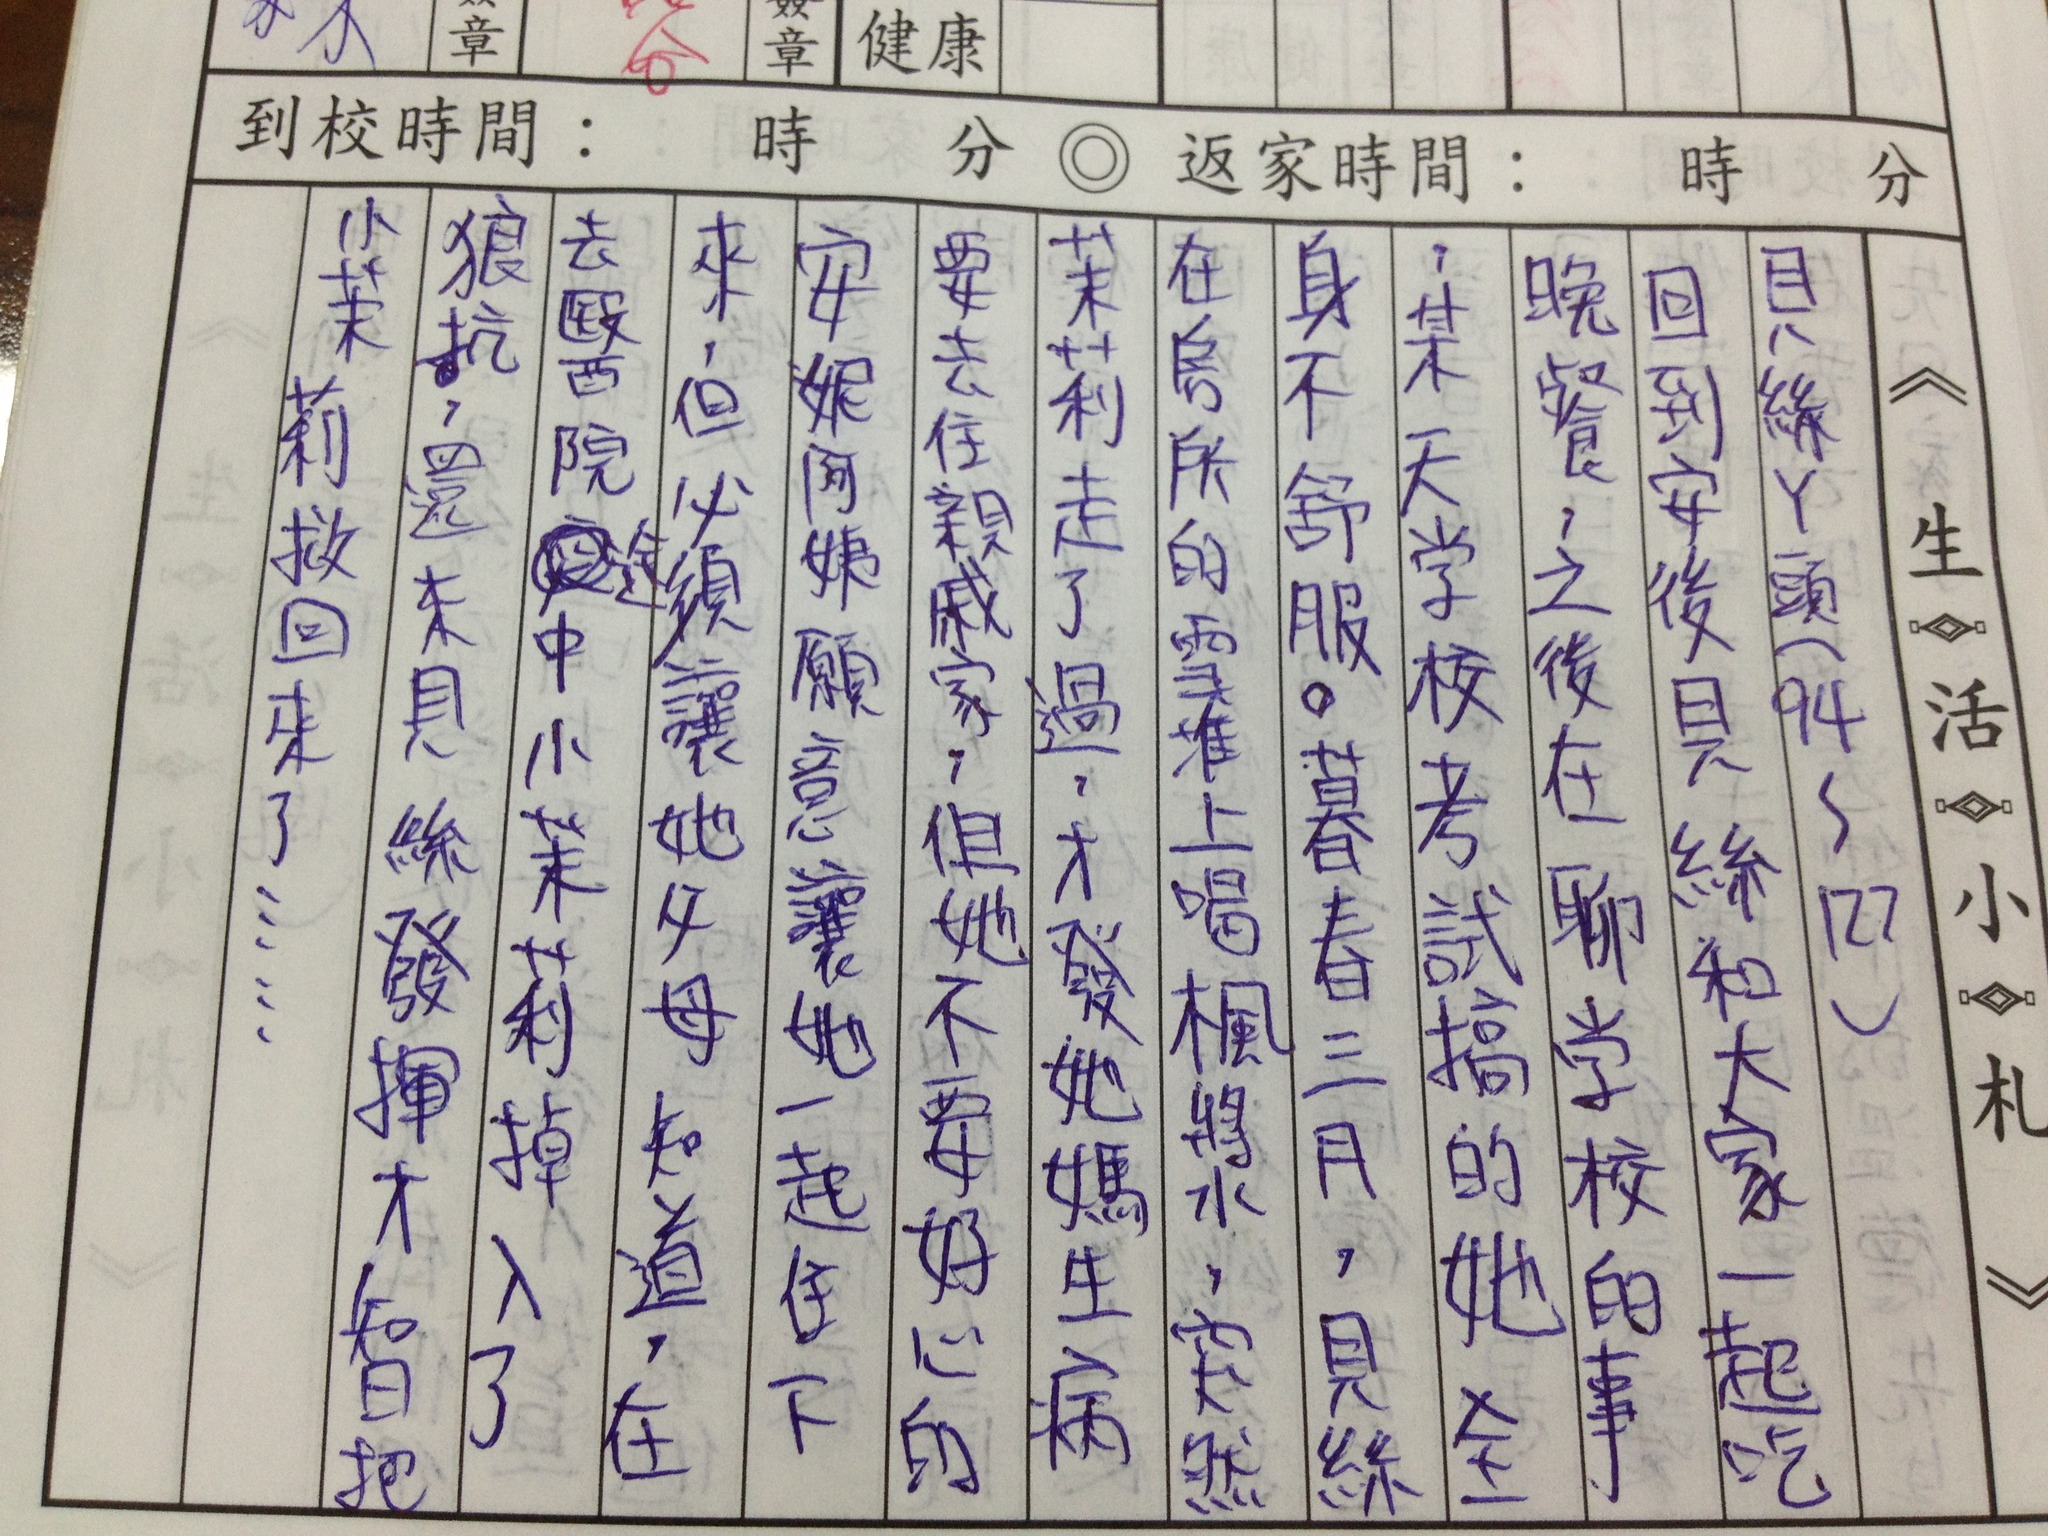 簽章
簽章
健康
到校時間： 時 分 ◎ 返家時間： 時 分
《生活小札》
貝絲丫頭(94~127)
回到安後貝絲和大家一起吃
晚餐，之後在聊学校的事
，某天学校考試搞的她全
身不舒服。暮春三月，貝絲
在烏所的雪堆上喝楓將水，突然
茉莉走了過，才發她媽生病
要去住親戚家，但她不要好心的
安妮阿姨願意讓她一起住下
來，但必須讓她父母知道，在
去醫院途中小茉莉掉入了
狼抗，還來貝絲發揮才智把
小茉莉救回來了……